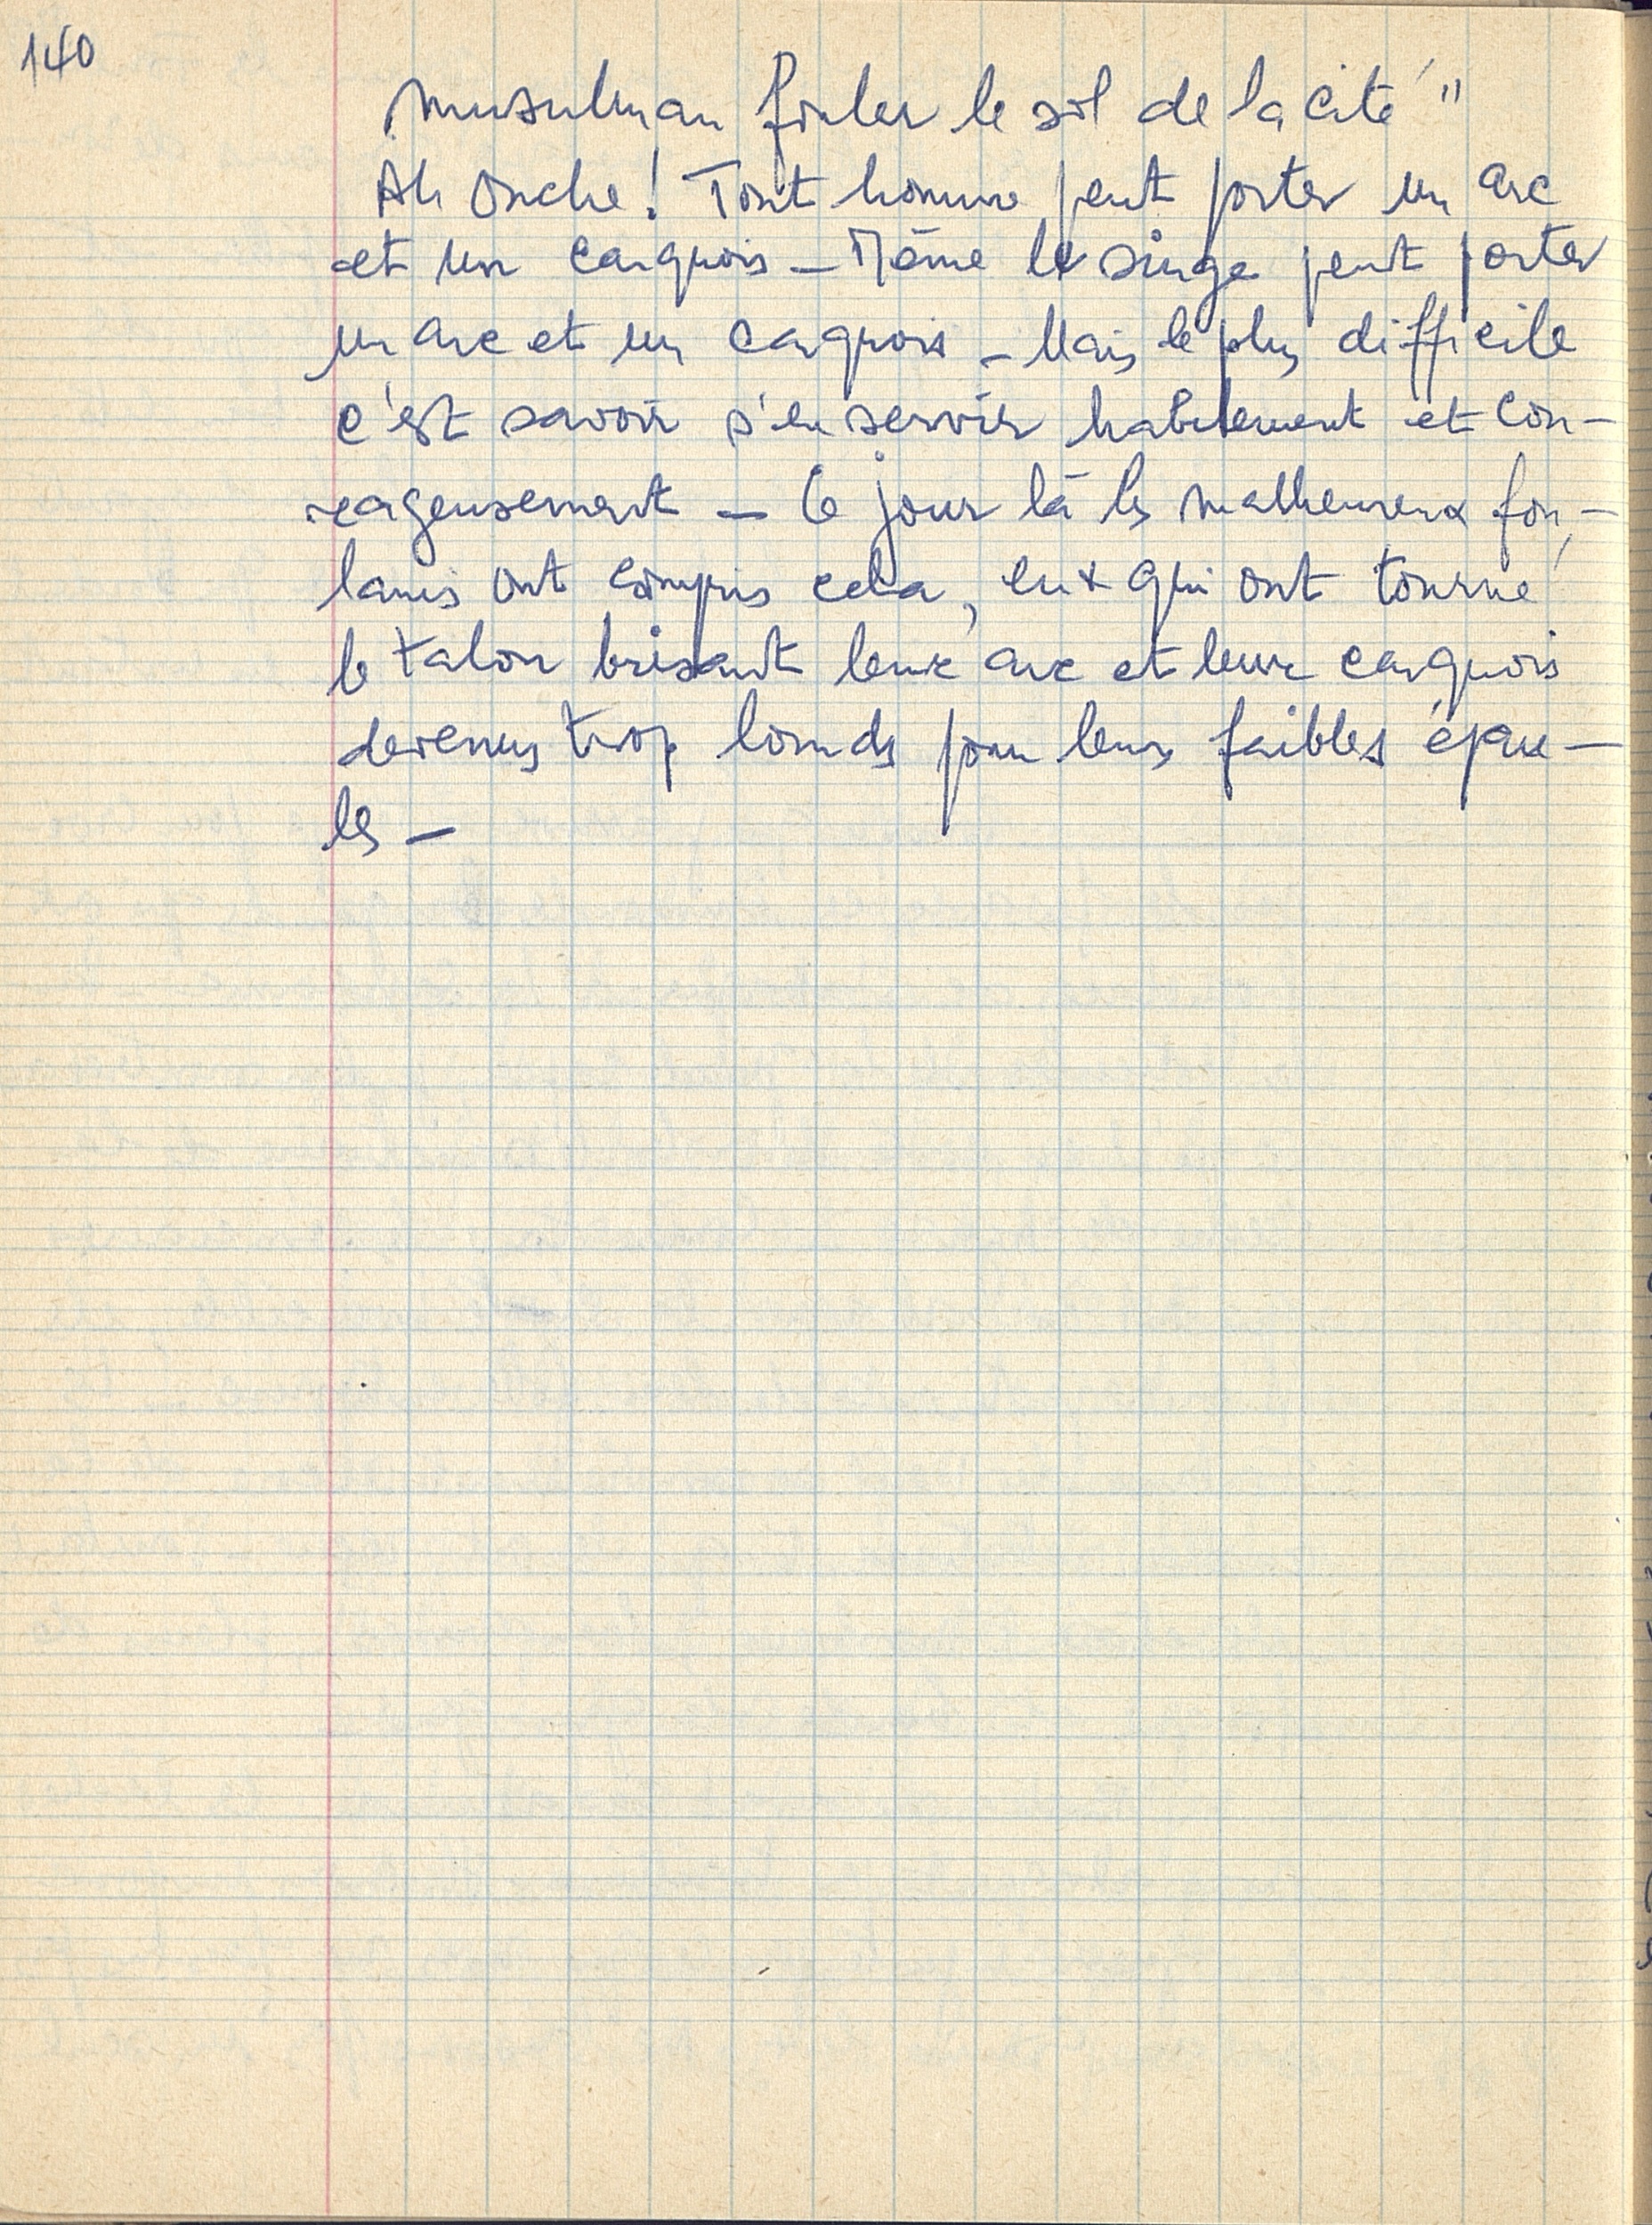 140
musulman fouler le sol de la cité"
Ah Oncle! Tout homme peut porter un arc
et un carquois - Même le singe peut porter
un arc et un carquois - Mais le plus difficile
c'est savoir s'en servir habilement et cou-
rageusement - Ce jour là les malheureux fou-
lanis ont compris cela, eux qui ont tourné
le talon brisant leur arc et leur carquois
devenus trop lourds pour leurs faibles épau-
les -